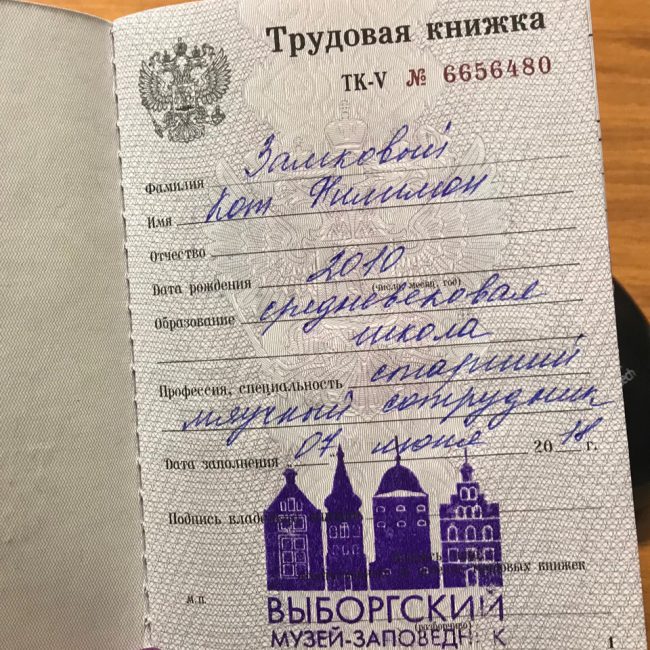 Трудовая книжка
ТК-V № 6656480
Фамилия Замковый
Имя Кот Филимон
Отчество
Дата рождения 2010
(число, месяц, год)
Образование средневековая
школа
Профессия, специальность старший
мяучный сотрудник
Дата заполнения 07 июня 2018 г.
Подпись владельца
трудовых книжек
М.П.
(разборчиво)
ВЫБОРГСКИЙ
МУЗЕЙ-ЗАПОВЕДНИК
1